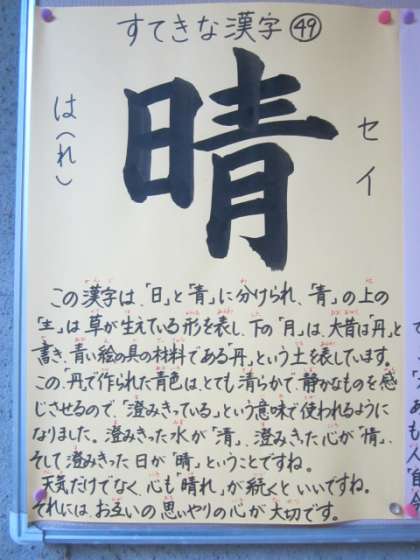 すてきな漢字㊾
晴
セイ
は(れ)
この漢字は、「日」と「青」に分けられ、「青」の上の
「土」は草が生えている形を表し、下の「月」は、大昔は「丹」と
書き、青い絵の具の材料である「丹」という土を表しています。
この、「丹で作られた青色は、とても清らかで、静かなものを感
じさせるので、「澄みきっている」という意味で使われるように
なりました。澄みきった水が「清」、澄みきった心が「情」、
そして澄みきった日が「晴」ということですね。
天気だけでなく、心も「晴れ」が続くといいですね。
それにはお互いの思いやりの心が大切です。